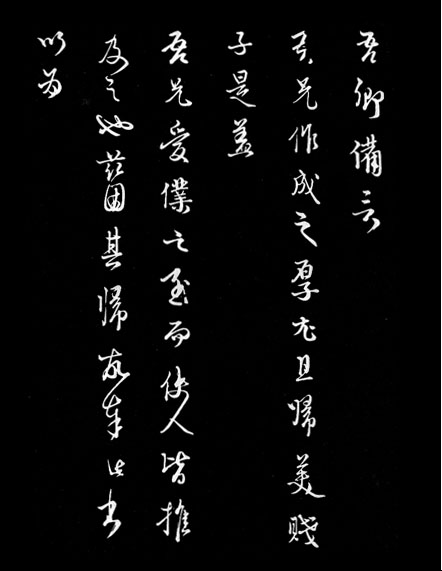 吾卿備言
吾兄作成之厚尤且歸美賤
子是蓋
吾兄愛僕之至而使人皆推
及之也茲因其歸敬奉此書
以為